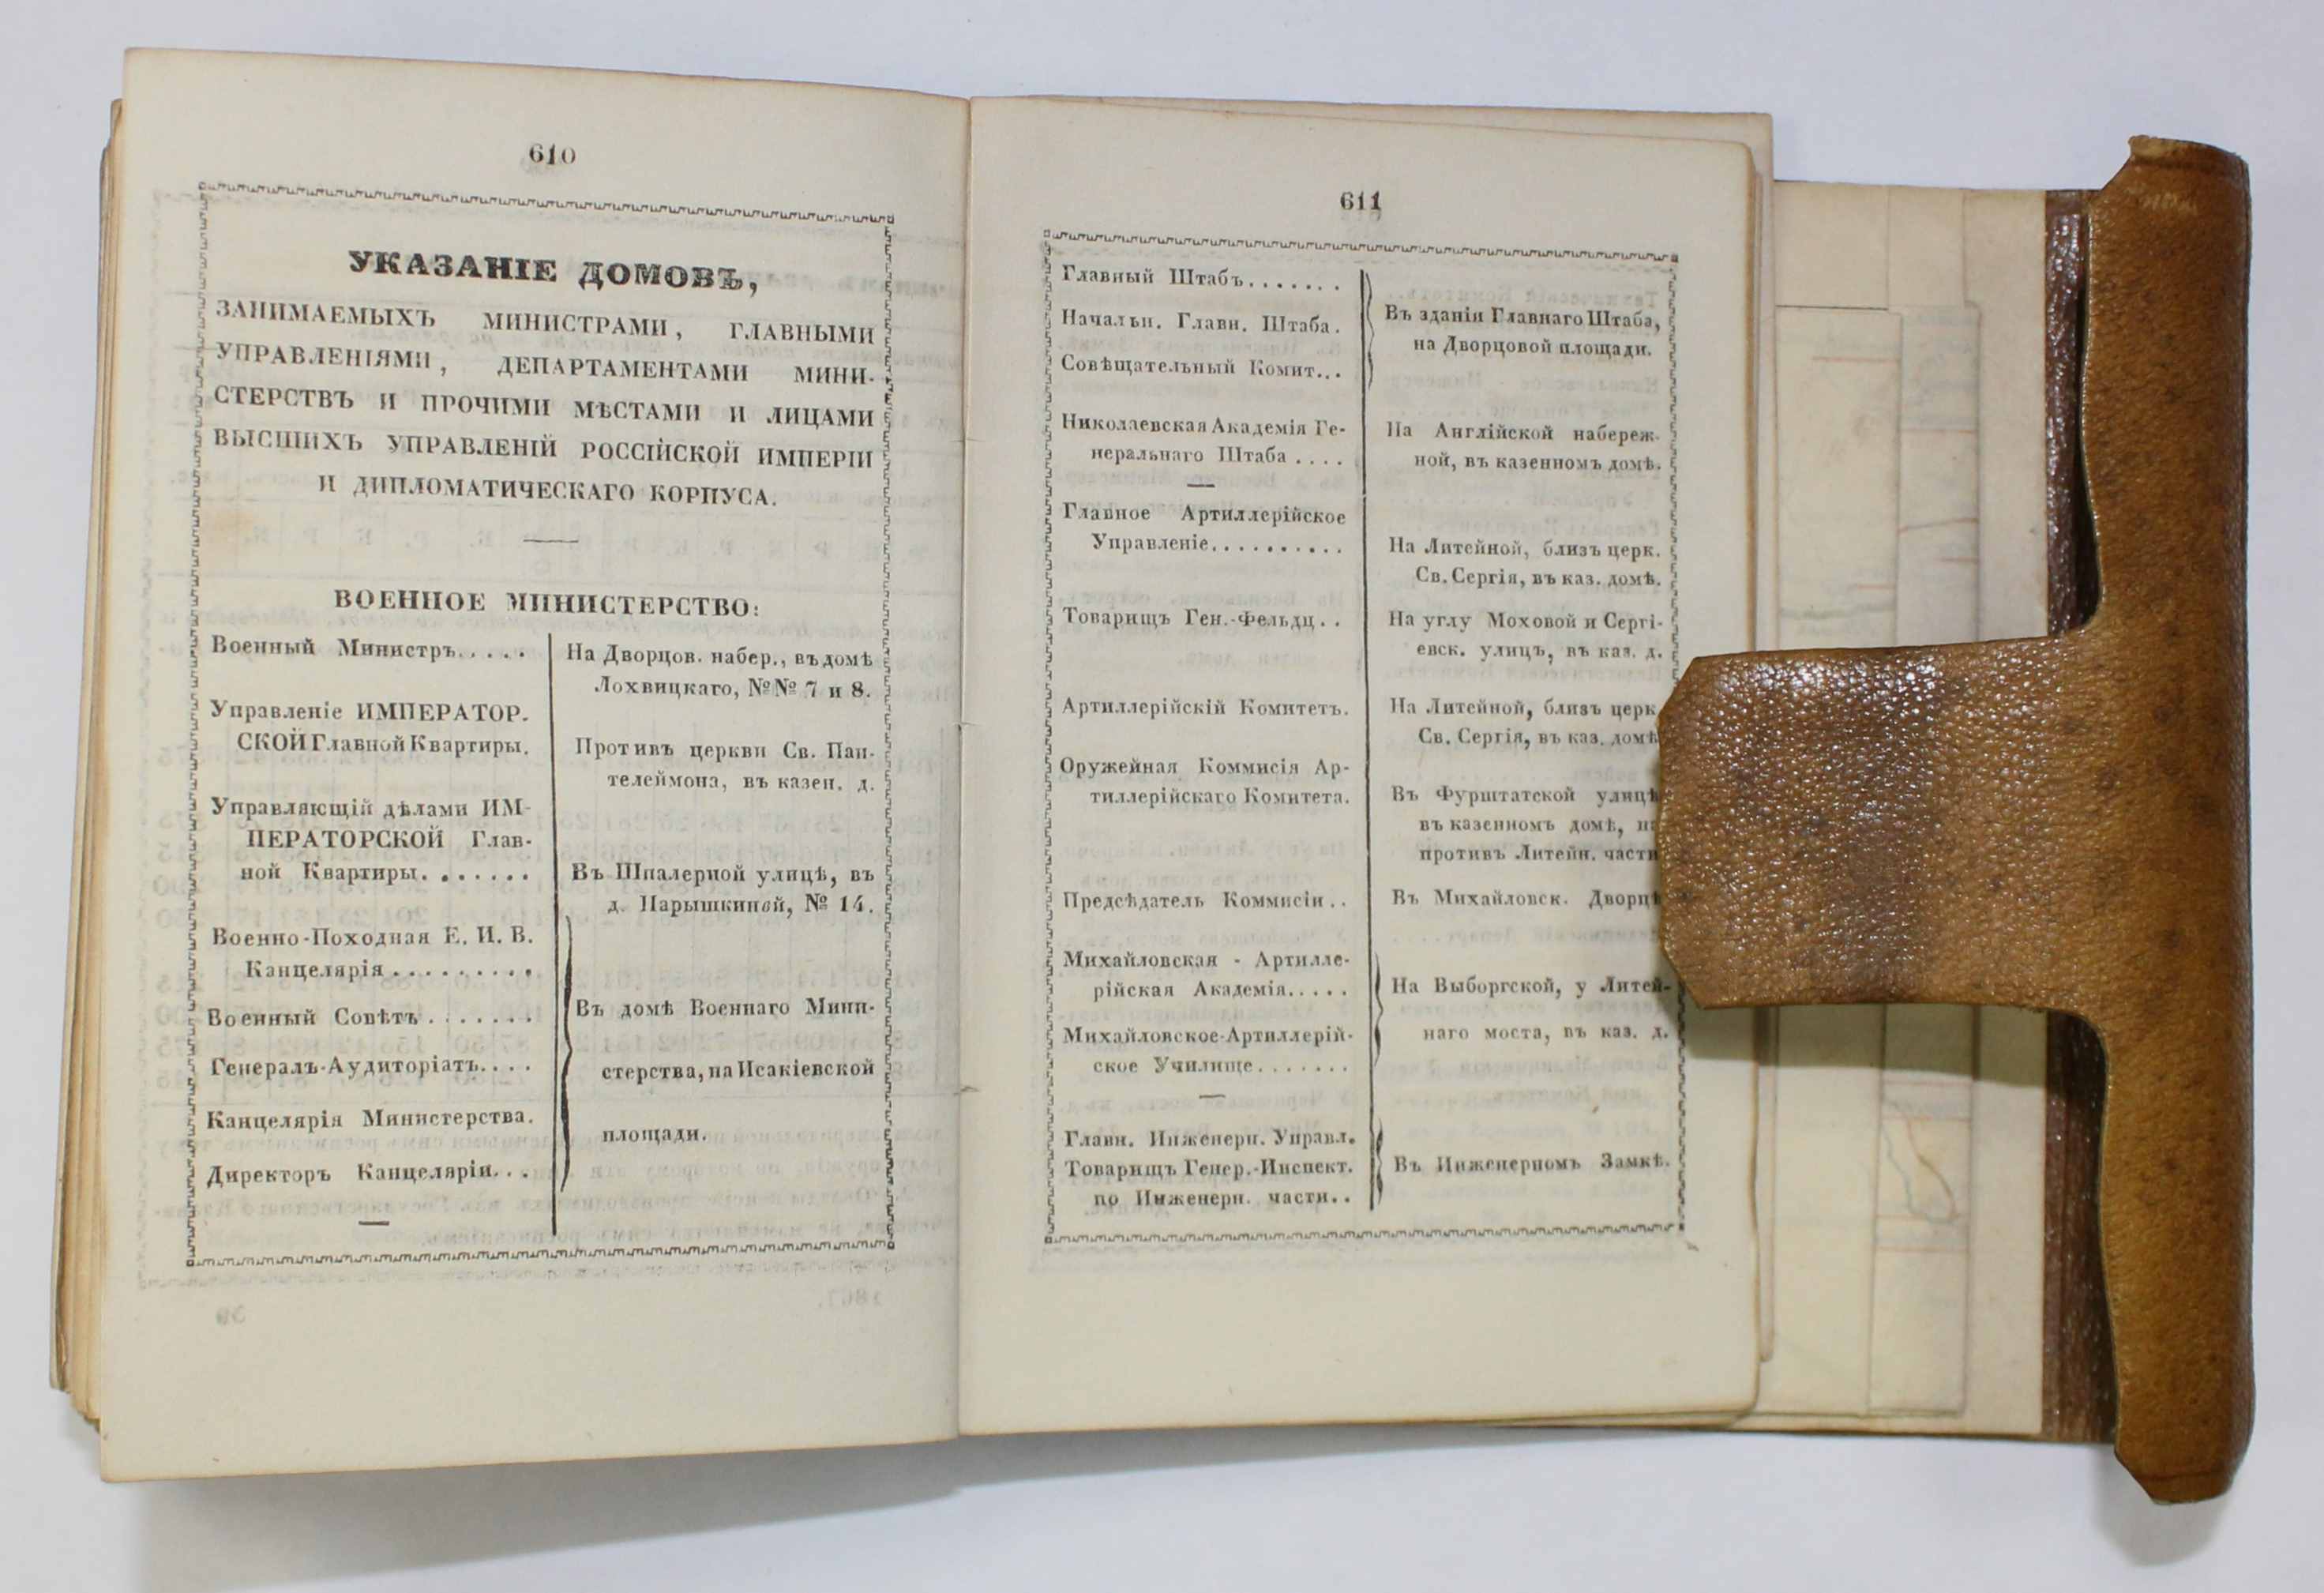 610
УКАЗАНІЕ ДОМОВЪ,
ЗАНИМАЕМЫХЪ МИНИСТРАМИ, ГЛАВНЫМИ
УПРАВЛЕНІЯМИ, ДЕПАРТАМЕНТАМИ МИНИ-
СТЕРСТВЪ И ПРОЧИМИ МѢСТАМИ И ЛИЦАМИ
ВЫСШИХЪ УПРАВЛЕНІЙ РОССІЙСКОЙ ИМПЕРІИ
И ДИПЛОМАТИЧЕСКАГО КОРПУСА.
ВОЕННОЕ МИНИСТЕРСТВО:
Военный Министръ.....
На Дворцов. набер., въ домѣ
Лохвицкаго, №№ 7 и 8.
Управленіе ИМПЕРАТОР-
СКОЙ Главной Квартиры.
Противъ церкви Св. Пан-
телеймона, въ казен. д.
Управляющій дѣлами ИМ-
ПЕРАТОРСКОЙ Глав-
ной Квартиры.......
Въ Шпалерной улицѣ, въ
д. Нарышкиной, № 14.
Военно-Походная Е. И. В.
Канцелярія.........
Военный Совѣтъ.......
Генералъ-Аудиторіатъ....
Канцелярія Министерства.
Директоръ Канцеляріи...
Въ домѣ Военнаго Мини-
стерства, на Исакіевской
площади.
611
Главный Штабъ.......
Начальн. Главн. Штаба.
Совѣщательный Комит...
Въ зданіи Главнаго Штаба,
на Дворцовой площади.
Николаевская Академія Ге-
неральнаго Штаба....
На Англійской набереж-
ной, въ казенномъ домѣ.
Главное Артиллерійское
Управленіе..........
На Литейной, близъ церк.
Св. Сергія, въ каз. домѣ.
Товарищъ Ген.-Фельдц..
На углу Моховой и Сергі-
евск. улицъ, въ каз. д.
Артиллерійскій Комитетъ.
На Литейной, близъ церк
Св. Сергія, въ каз. домѣ
Оружейная Коммисія Ар-
тиллерійскаго Комитета.
Въ Фурштатской улицѣ
въ казенномъ домѣ, на
противъ Литейн. части
Предсѣдатель Коммисіи..
Въ Михайловск. Дворцѣ
Михайловская - Артилле-
рійская Академія.....
Михайловское-Артиллерій-
ское Училище.......
На Выборгской, у Литей-
наго моста, въ каз. д.
Главн. Инженерн. Управл.
Товарищъ Генер.-Инспект.
по Инженерн. части..
Въ Инженерномъ Замкѣ.